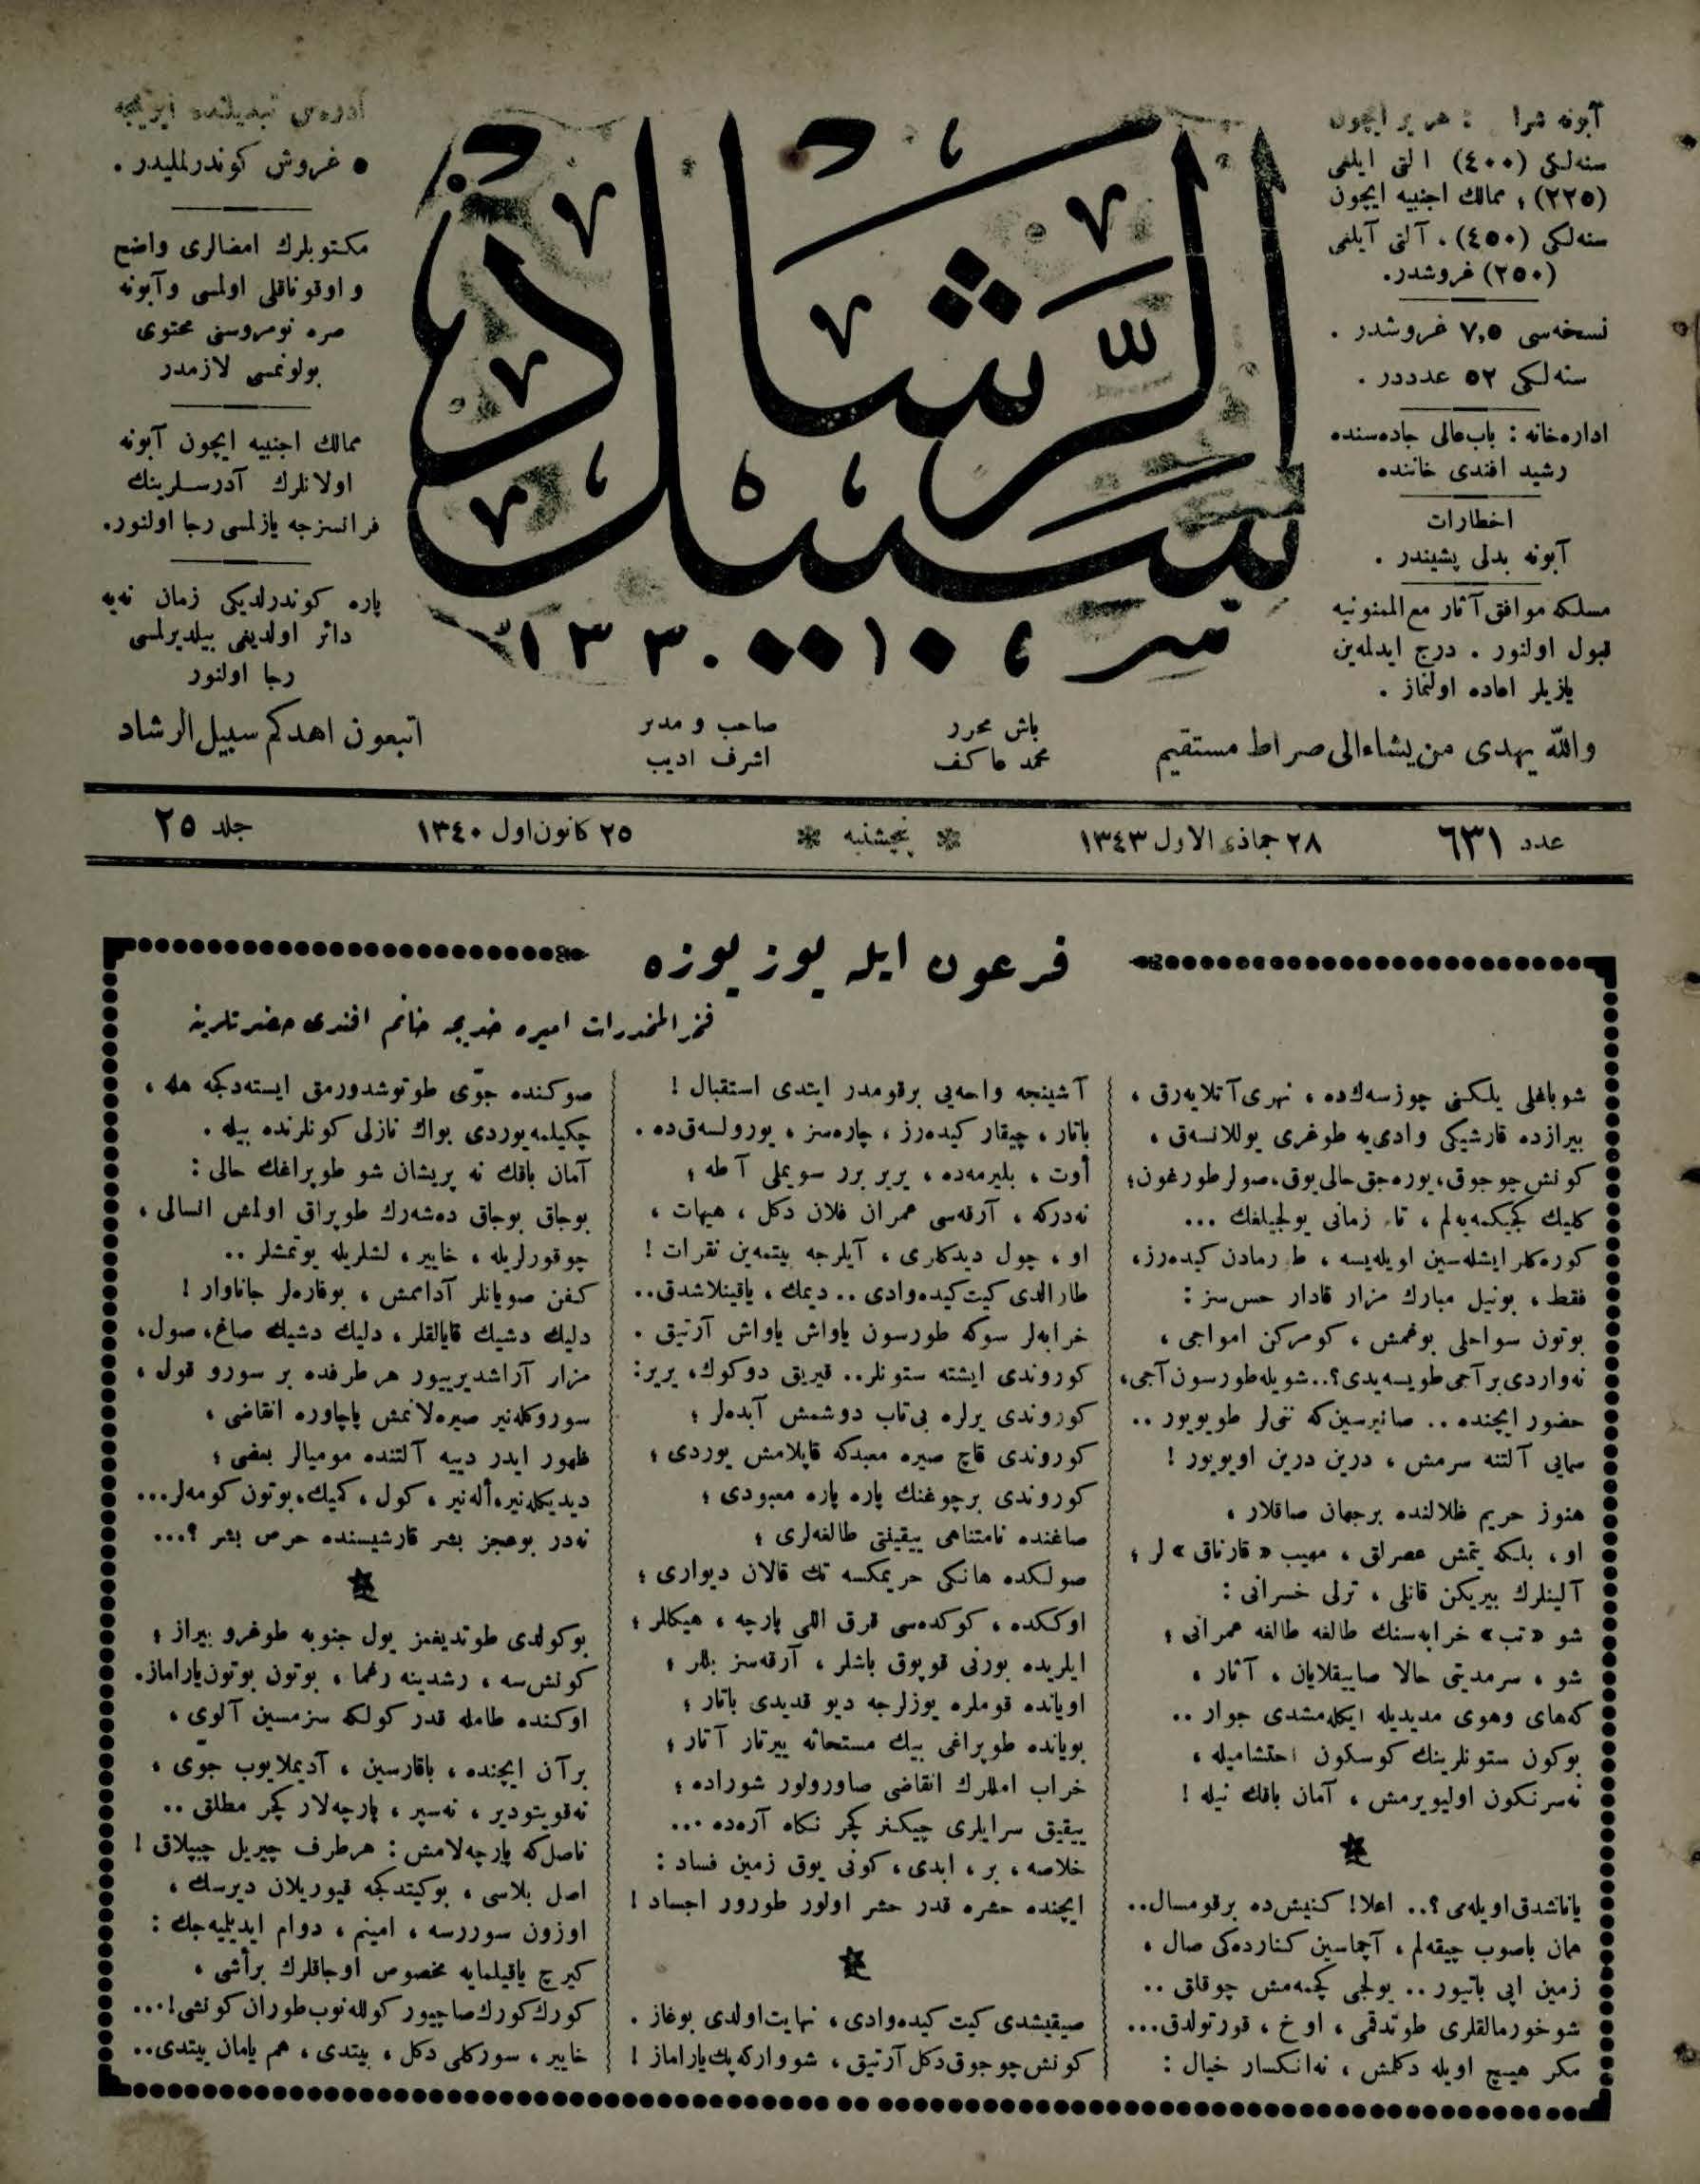 آبونه شرا : هر یر ایچون
سنه‌لکی (٤٠٠) التی ایلغی
(٢٢٥)، ممالك اجنبیه ایچون
سنه‌لکی (٤٥٠)، آلتی آیلغی
(٢٥٠) غروشدر.
نسخه‌سی ٧,٥ غروشدر .
سنه‌لکی ٥٢ عدددر .
اداره‌خانه : باب‌عالی جاده‌سنده
رشید افندی خاننده
اخطارات
آبونه بدلی پشیندر .
مسلکه موافق آثار مع‌الممنونیه
قبول اولنور . درج ایدلمه‌ین
یازیلر اعاده اولنماز .
سبیل الرشاد
آدره‌س تبدیلنده آیریجه
٥ غروش کوندرلملیدر .
مکتوبلرك امضالری واضح
و اوقوناقلی اولمسی وآبونه
صره نومروسنی محتوی
بولونمسی لازمدر
ممالك اجنبیه ایچون آبونه
اولانلرك آدرسلرینك
فرانسزجه یازلمسی رجا اولنور.
پاره کوندرلدیکی زمان نه‌یه
دائر اولدیغی بیلدیرلمسی
رجا اولنور
والله یهدی من یشاء الی صراط مستقیم
باش محرر
محمد عاکف
صاحب و مدیر
اشرف ادیب
اتبعون اهدکم سبیل الرشاد
عدد ٦٣١
٢٨ جماذی الاول ١٣٤٣
پنجشنبه
٢٥ کانون اول ١٣٤٠
جلد ٢٥
فرعون ایله یوز یوزه
فخر المخدرات امیره خدیجه خانم افندی حضرتلرینه
شو باغلی یلکنی چوزسه‌ك‌ده ، نهری آتلایه‌رق ،
بیرازده قارشیکی وادی‌یه طوغری یوللانسه‌ق ،
کونش چوجوق، یوره‌جق حالی یوق، صولر طورغون؛
کلیك کجیکمه‌یه‌لم ، تام زمانی یولجیلغك ...
کوره‌کلر ایشله‌سین اویله‌یسه ، طورمادن کیده‌رز،
فقط ، بونیل مبارك مزار قادار حس‌سز :
بوتون سواحلی بوغمش ، کومرکن امواجی ،
نه‌واردی برآجی طویسه‌یدی؟.. شویله طورسون آجی،
حضور ایچنده .. صانیرسین‌که ننی‌لر طویویور ..
سمایی آلتنه سرمش ، درین درین اویویور !
هنوز حریم ظلالنده برجهان صاقلار ،
او ، بلکه یتمش عصرلق ، مهیب «قارناق» لر ؛
آلینلرك بیریکن قانلی ، ترلی خسرانی :
شو «تب» خرابه‌سنك طالغه طالغه عمرانی ؛
شو ، سرمدیتی حالا صاییقلایان ، آثار ،
که‌های وهوی مدیدیله ایکله‌مشدی جوار ..
بوکون ستونلرینك کوسکون احتشامیله ،
نه‌سرنکون اولیویرمش ، آمان باقك نیله !
یاناشدق اویله‌می ؟.. اعلا! کنیش‌ده برقومسال..
همان باصوب چیقه‌لم ، آچماسین کنارده‌کی صال ،
زمین ایی باتیور .. یولجی کچمه‌مش چوقلق ..
شو خورمالقلری طوتدقمی ، اوخ ، قورتولدق...
مکر هیچ اویله دکلمش ، نه‌انکسار خیال :
آشینجه واحه‌یی برقومدر ایتدی استقبال !
باتار ، چیقار کیده‌رز ، چاره‌سز ، یورولسه‌ق‌ده .
أوت ، بلیرمه‌ده ، یریر برر سویملی آطه ؛
نه‌درکه ، آرقه‌سی عمران فلان دکل ، هیهات ،
او ، چول دیدکلری ، آیلرجه بیتمه‌ین نقرات !
طارالدی کیت کیده‌وادی .. دیمك ، یاقینلاشدق..
خرابه‌لر سوکه طورسون یاواش یاواش آرتیق .
کوروندی ایشته ستونلر.. قیریق دوکوك، یریر:
کوروندی یرلره بی‌تاب دوشمش آبده‌لر ؛
کوروندی قاچ صیره معبدکه قاپلامش یوردی ؛
کوروندی برچوغنك پاره پاره معبودی ؛
صاغنده نامتناهی ییقینتی طالغه‌لری ؛
صولکده هانکی حریمکسه تك قالان دیواری ؛
اوککده ، کوکده‌سی قرق اللی پارچه ، هیکللر ؛
ایلریده بورنی قوپوق باشلر ، آرقه‌سز بللر ؛
اویانده قوملره یوزلرجه دیو قدیدی باتار ؛
بویانده طوپراغی بیك مستحاثه ییرتار آتار ؛
خراب امللرك انقاضی صاورولور شوراده ؛
ییقیق سرایلری چیکنر کچر نکاه آره‌ده ...
خلاصه ، بر ، ابدی ، کونی یوق زمین فساد :
ایچنده حشره قدر حشر اولور طورور اجساد !
صیقیشدی کیت کیده‌وادی ، نهایت اولدی بوغاز .
کونش چوجوق دکل آرتیق ، شو وارکه پك یاراماز !
صوکنده جوّی طوتوشدورمق ایسته‌دکجه هله ،
چکیلمه‌یوردی بواك نازلی کونلرنده بیله .
آمان باقك نه پریشان شو طوپراغك حالی :
بوجاق بوجاق ده‌شه‌رك طوپراق اولمش انسالی ،
چوقورلریله ، خاییر ، لشلریله یوتمشلر ..
کفن صویانلر آدامش ، بوقاره‌لر جاناوار !
دلیك دشیك قایالقلر ، دلیك دشیك صاغ، صول،
مزار آراشدیرییور هرطرفده بر سورو قول ،
سوروکله‌نیر صیره‌لانمش پاچاوره انقاضی ،
ظهور ایدر دییه آلتنده مومیالر بعضی ؛
دیدیکله‌نیر، أله‌نیر ، کول ، کمیك، بوتون کومه‌لر...
نه‌در بوعجز بشر قارشیسنده حرص بشر ؟...
بوکولدی طوتدیغمز یول جنوبه طوغرو بیراز ؛
کونش‌سه ، رشدینه رغما ، بوتون بوتون یاراماز.
اوکنده طامله قدر کولکه سزمسین آلوی ،
برآن ایچنده ، باقارسین ، آدیملایوب جوّی ،
نه‌قویتودیر ، نه‌سپر ، پارچه‌لار کچر مطلق ..
ناصل‌که پارچه‌لامش : هرطرف چیریل چیپلاق !
اصل بلاسی ، بوکیتدکجه قیوریلان دیرسك ،
اوزون سوررسه ، امینم ، دوام ایدیلیه‌جك :
کیرچ یاقیلمایه مخصوص اوجاقلرك برأشی ،
کورك کورك صاچیور کولله‌نوب طوران کونشی!...
خاییر ، سورکلی دکل ، بیتدی ، هم یامان بیتدی..